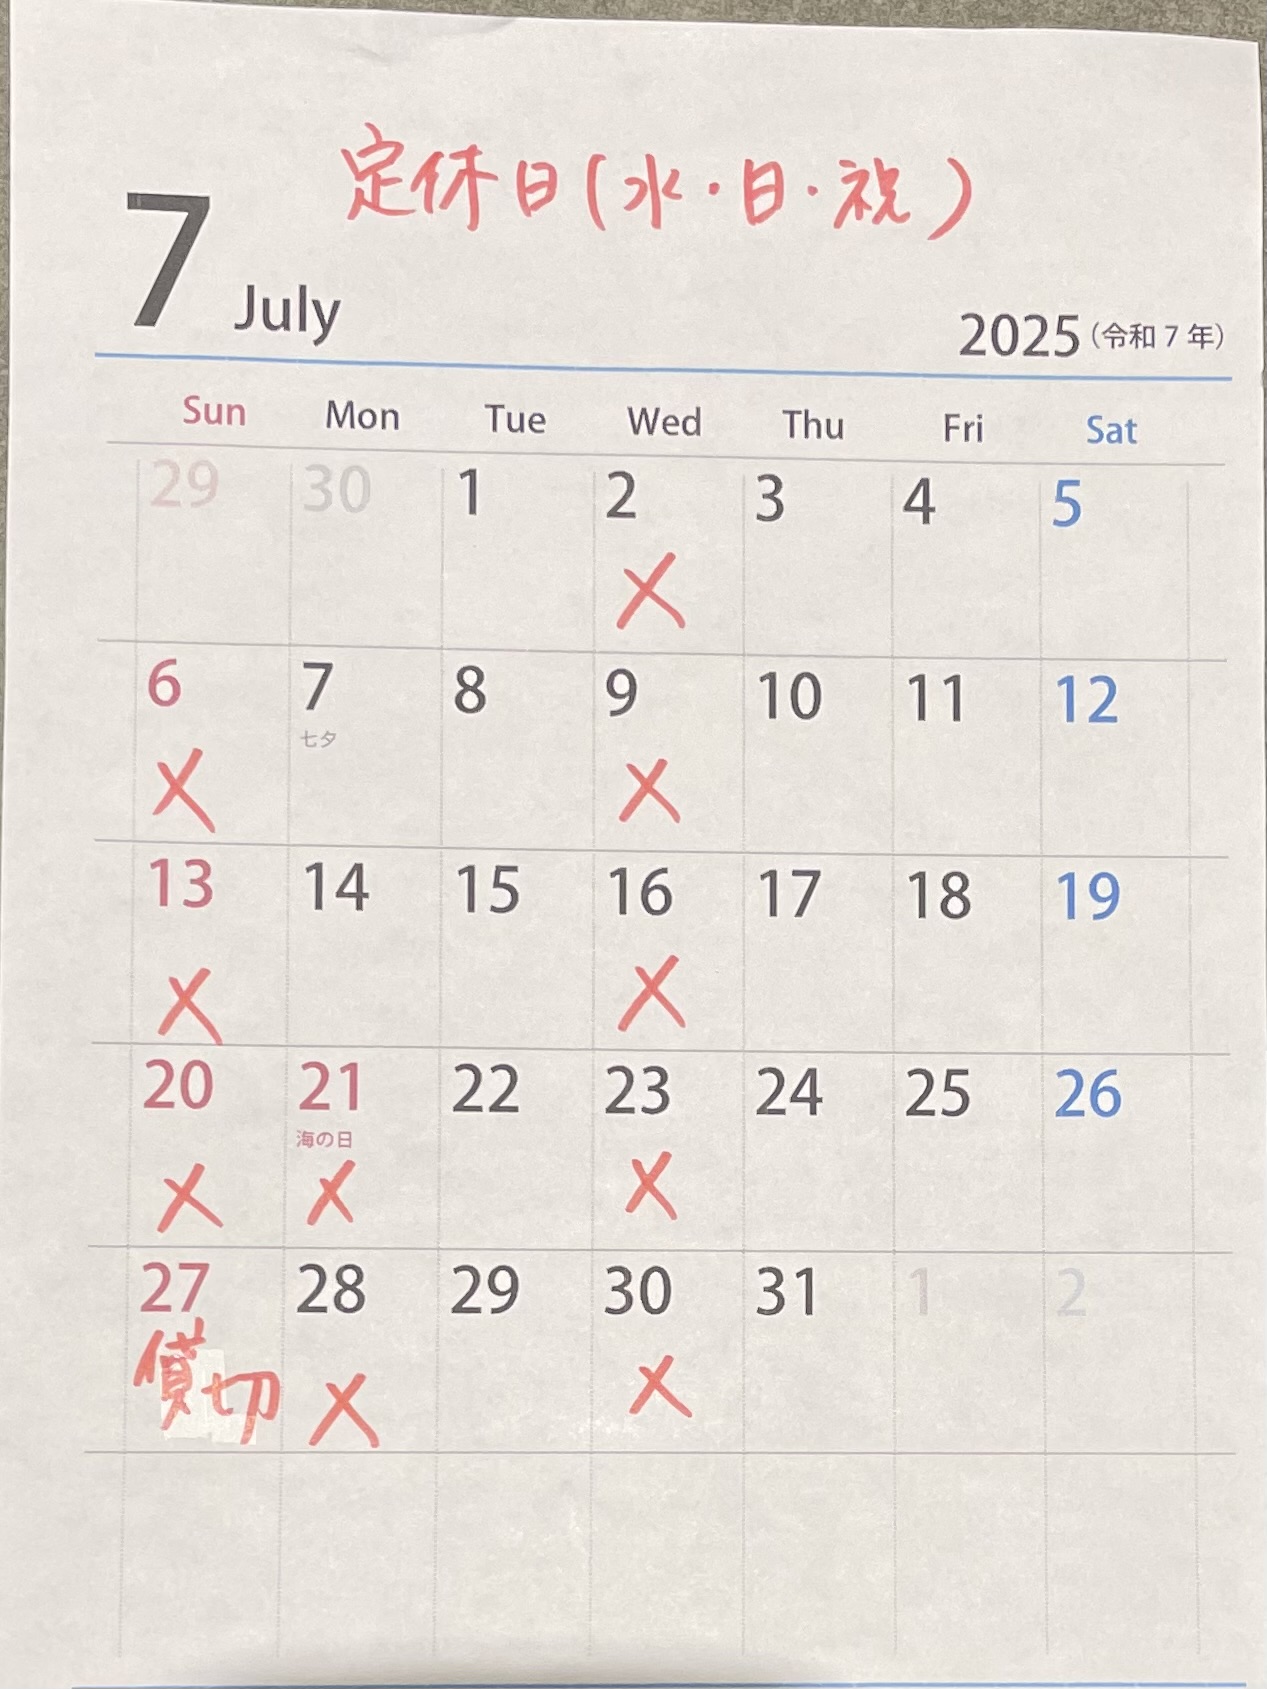 定休日(水・日・祝)
7 July
2025(令和7年)
Sun Mon Tue Wed Thu Fri Sat
29 30 1 2 3 4 5
X
6 7 8 9 10 11 12
七夕
X X
13 14 15 16 17 18 19
X X
20 21 22 23 24 25 26
海の日
X X X
27 28 29 30 31 1 2
貸切 X X